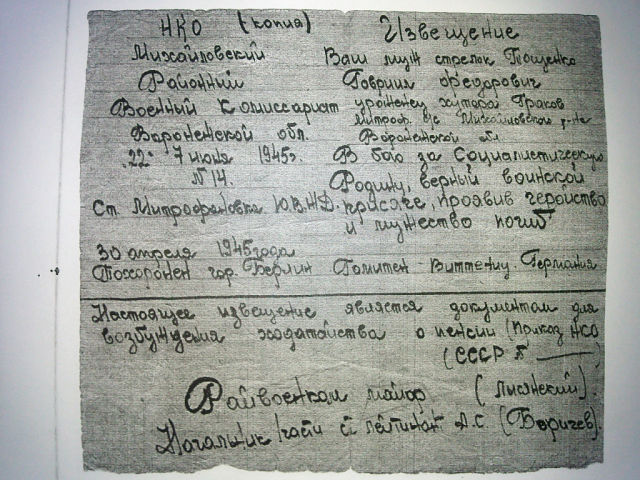 НКО (копия) Извещение
Михайловский Ваш муж стрелок Тощенко
Районный Гавриил Федорович
Военный Комиссариат уроженец хутора Граков
Митроф. с/с Михайловского р-на
Воронежской обл. Воронежской обл
"22" 7 июня 1945г. В бою за Социалистическую
N 14. Родину, верный воинской
Ст. Митрофановка Ю.В.Ж.Д. присяге, проявив геройство
и мужество погиб
30 апреля 1945 года
Похоронен гор. Берлин Германия
Настоящее извещение является документам для
возбуждения ходатайства о пенсии (Приказ НСО
(СССР N ____)
Райвоенком майор (Лысянский).
Начальник части ст лейтинант А.С. (Боричев).